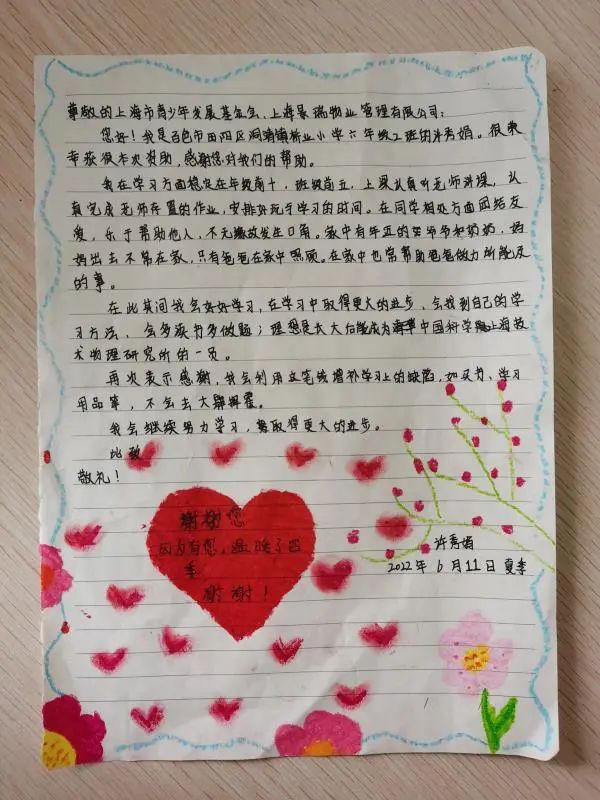 尊敬的上海市青少年发展基金会、上海景瑞物业管理有限公司：
您好！我是百色市田阳区洞靖镇桥业小学六年级2班的许秀娟。很荣
幸获得本次资助，感谢您对我们的帮助。
我在学习方面稳定在年级前十，班级前五，上课认真听老师讲课，认
真完成老师布置的作业，安排好玩与学习的时间。在同学相处方面团结友
爱，乐于帮助他人，不无缘故发生口角。家中有年迈的爷爷和奶奶，妈
妈出去不常在家，只有爸爸在家中照顾。在家中也常帮助爸爸做力所能及
的事。
在此其间我会好好学习，在学习中取得更大的进步，会找到自己的学
习方法，会多读书多做题；理想是长大后能成为中国科学院上海技
术物理研究所的一员。
再次表示感谢，我会利用这笔钱增补学习上的缺陷，如买书、学习
用品等，不会去大肆挥霍。
我会继续努力学习，争取得更大的进步。
此致
敬礼！
谢谢您
因为有您，温暖了四
季
谢谢！
许秀娟
2022年6月11日夏季